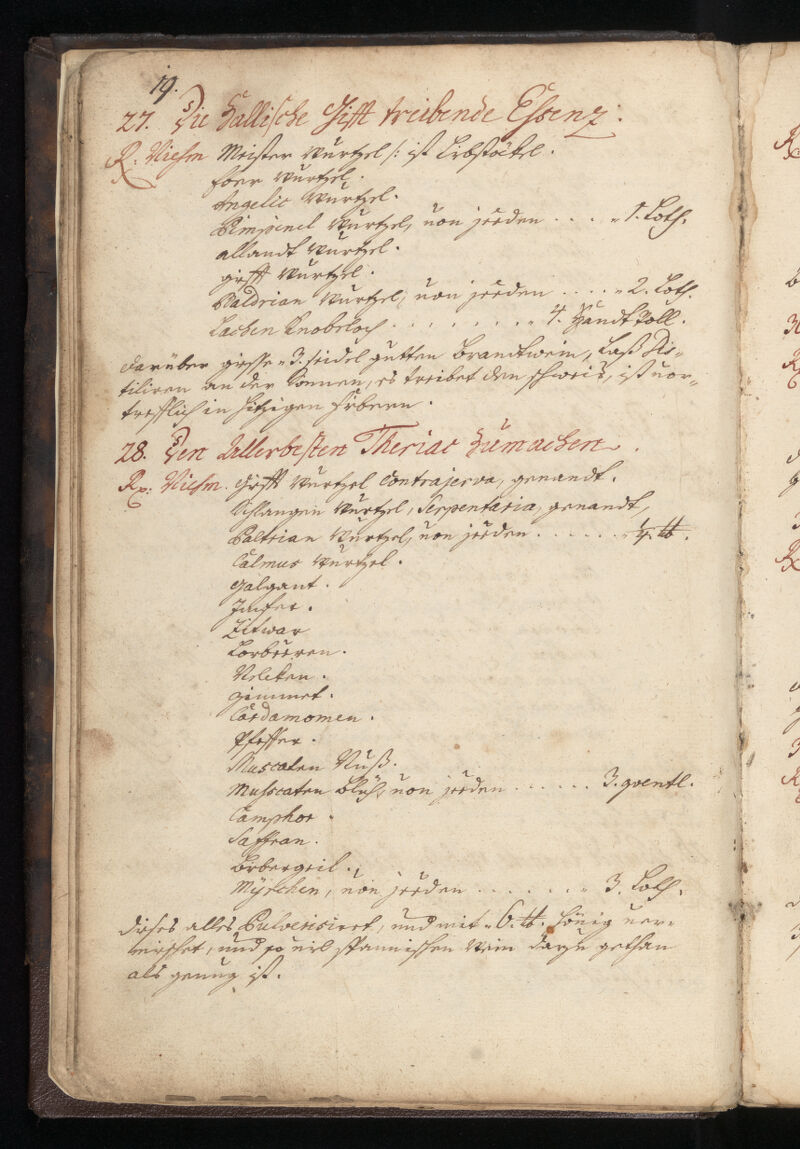 19.
27. Die Hallische Gifft treibende Essenz:
R. Niehm Meister wurtzel /: ist Liebstöckel.
wurtzel.
Angelic wurtzel.
Bimpinel wurtzel, von jeeden . . . . „ 1. Loth.
allandt wurtzel.
gifft wurtzel.
Baldrian wurtzel, von jeeden . . . . . „ 2. Loth.
Lachen Knobeloch . . . . . . . . „ 4. Handt Voll.
darüber giesse „ 3. seidel gutten brandtwein, Laß Dis-
tiliren an der Sonnen, es treibet den schweis, ist vor-
trefflich in hitzigen fiebern.
28. Den Allerbesten Theriac Zumachen.
Rx: Niehm. gifft wurtzel Contrajerva, genandt.
Schlangen wurtzel, Serpentaria, genandt,
Baltrian wurtzel, von jeeden . . . . . . „ ¼. ℔.
Calmus wurtzel.
galgant.
Imfer.
Zitwar
Lorbeeren.
Nelcken.
Zimmet.
Cardamomen.
Pfeffer.
Muscaten Nuß.
Muscaten blüh, von jeeden . . . . . . 3. qventl.
Camphor.
Saffran.
Bibergeil.
Myrrhen, von jeeden . . . . . . . „ 3. Loth.
dieses alles Pulverisiert, und mit „ 6. ℔. hönig ver-
mischet, und so viel spannischen wein dazu gethan
als genug ist.